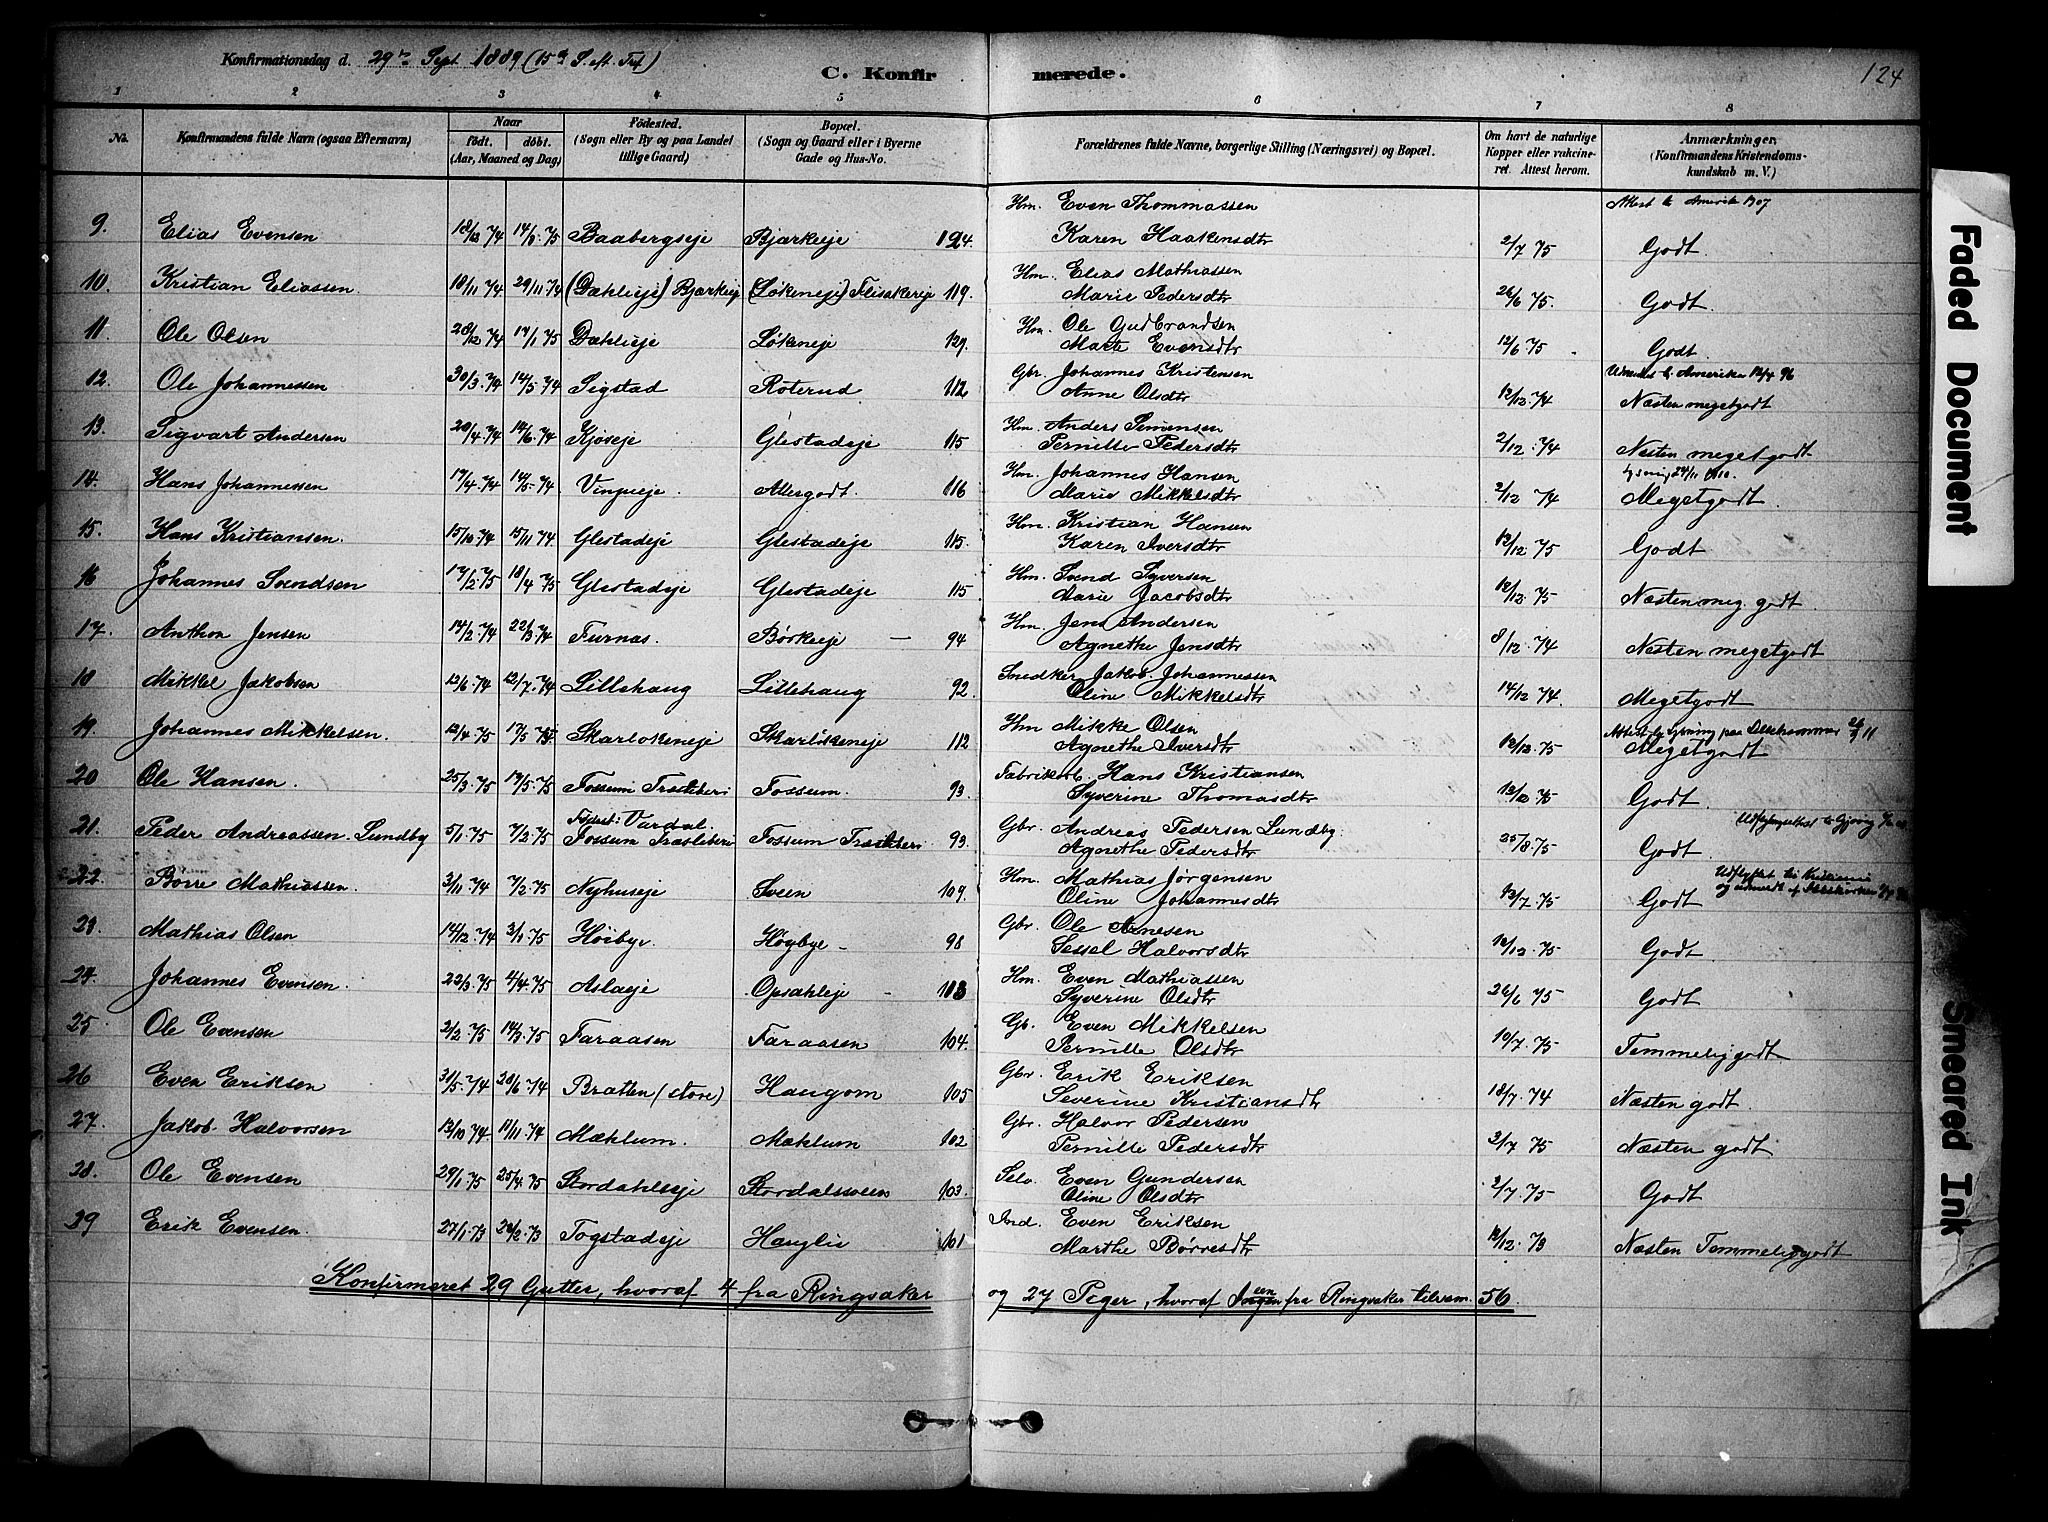 Konfirmationsdag d. 29de Sept 1889 (15de S. eft. Tref)
C. Konfirmerede.
124
1 2 3 4 5 6 7 8
No.
Konfirmandens fulde Navn (ogsaa Efternavn)
Naar
födt. döbt.
(Aar, Maaned og Dag)
Födested.
(Sogn eller By og paa Landet tillige Gaard)
Bopæl.
(Sogn og Gaard eller i Byerne Gade og Hus-No.
Forældrenes fulde Navne, borgerlige Stilling (Næringsvei) og Bopæl.
Om havt de naturlige Kopper eller vakcineret. Attest herom.
Anmærkninger.
(Konfirmandens Kristendomskundskab m. V.)
9. Elias Evensen 18/12 74 14/3 75 Baabergseje Bjærkeeje 124. Hm. Even Thommassen
Karen Haakensdtr 2/7 75 Attest til Amerika 1907 Godt.
10. Kristian Eliassen 18/11 74 29/11 74 (Dæhlieje) Bjerkeeje (Løkeneje) Flisakereje 119. Hm. Elias Mathiassen
Marie Pedersdtr 26/6 75. Godt.
11. Ole Olsen 28/12 74 17/1 75 Dæhlieje Løkeneje 129. Hm. Ole Gudbrandsen
Marte Evensdtr 12/6 75 Godt.
12. Ole Johannessen 30/3 74 14/5 74 Sigstad Roterud 112 Gbr. Johannes Kristensen
Anne Olsdtr 12/12 74 Næsten megetgodt
13. Sigvart Andersen 20/4 74 14/6 74 Kjøseje Glestadeje 115 Hm. Anders Simensen
Pernille Pedersdtr 2/12 74 Næsten megetgodt
14. Hans Johannessen 17/4 74 14/5 74 Vingeeje. Allergodt. 116 Hm. Johannes Hansen
Marie Mikkelsdtr 2/12 74 Megetgodt
15. Hans Kristiansen. 15/10 74 15/11 74 Glestadeje Glestadeje 115. Hm. Kristian Hansen
Karen Iversdtr 12/12 75 Godt
16 Johannes Svendsen 17/2 75 18/4 75 Glestadeje Glestadeje 115 Hm. Svend Syversen
Marie Jacobsdtr 12/12 75 Næsten meg. godt.
17. Anthon Jensen 14/2 74 22/3 74 Furnæs. Børkeeje 94 Hm. Jens Andersen
Agnethe Jensdtr 8/12 74 Næsten megetgodt
18 Mikkel Jakobsen 12/6 74 12/7 74 Lillehaug Lillehaug 92. Snedker Jakob Johannessen
Oline Mikkelsdtr 14/12 74. Megetgodt
19. Johannes Mikkelsen. 12/4 75 17/5 75 Skarlokeneje Skarløkeneje 112 Hm Mikke Olsen
Agnethe Iversdtr 12/12 75 Megetgodt
20 Ole Hansen. 25/3 75 17/5 75 Fossum Træsliberi Fossum. 93. Fabrikarb. Hans Kristiansen
Syverine Thomasdtr 12/12 75 Godt
21. Peder Andreassen Lundby 5/1 75 7/2 75 Vardal. Fossum Træsliberi Fossum Træsliberi 93 Gbr. Andreas Pedersen Lundby
Agnethe Pedersdtr 25/8 75 Godt
22. Børre Mathiassen. 3/11 74 7/2 75 Nyhuseje Sveen 109. Hm. Mathias Jørgensen
Oline Johannesdtr 12/7 75 Udflyttet til Kristiania Godt
23. Mathias Olsen 14/12 74 3/1 75 Høibye. Høybye 98 Gbr. Ole Arnesen
Sessel Halvorsdtr 12/12 75 Godt
24. Johannes Evensen. 22/3 75 4/4 75 Aslaeje Opsahleje 113 Hm. Even Mathiassen
Syverine Olsdtr 26/6 75 Godt
25. Ole Evensen 2/2 75 14/3 75 Faraasen Faraasen 104. Gb. Even Mikkelsen
Pernille Olsdtr 10/7 75. Temmeligodt
26 Even Eriksen 31/5 74 28/6 74 Bratten (store) Haugom 105 Gbr. Erik Eriksen
Severine Kristiansdtr 18/7 74 Næsten godt.
27. Jakob Halvorsen 12/10 74 11/11 74 Mæhlum. Mæhlum 102 Gbr. Halvor Pedersen
Pernille Pedersdtr 2/7 75 Næsten godt
28. Ole Evensen 29/1 75 25/4 75 Stordahlseje Stordalssveen 103. Selv. Even Gundersen
Oline Olsdtr 2/7 75 Godt
29 Erik Evensen 27/1 73 28/2 73 Togstadeje Hauglie 101 Ind. Even Eriksen
Marthe Børresdtr 12/12 73 Næsten Temmeligodt
Konfirmeret 29 Gutter, hvoraf 4 fra Ringsaker og 27 Piger, hvoraf een fra Ringsaker tilsam. 56.
Faded Document
Smeared Ink